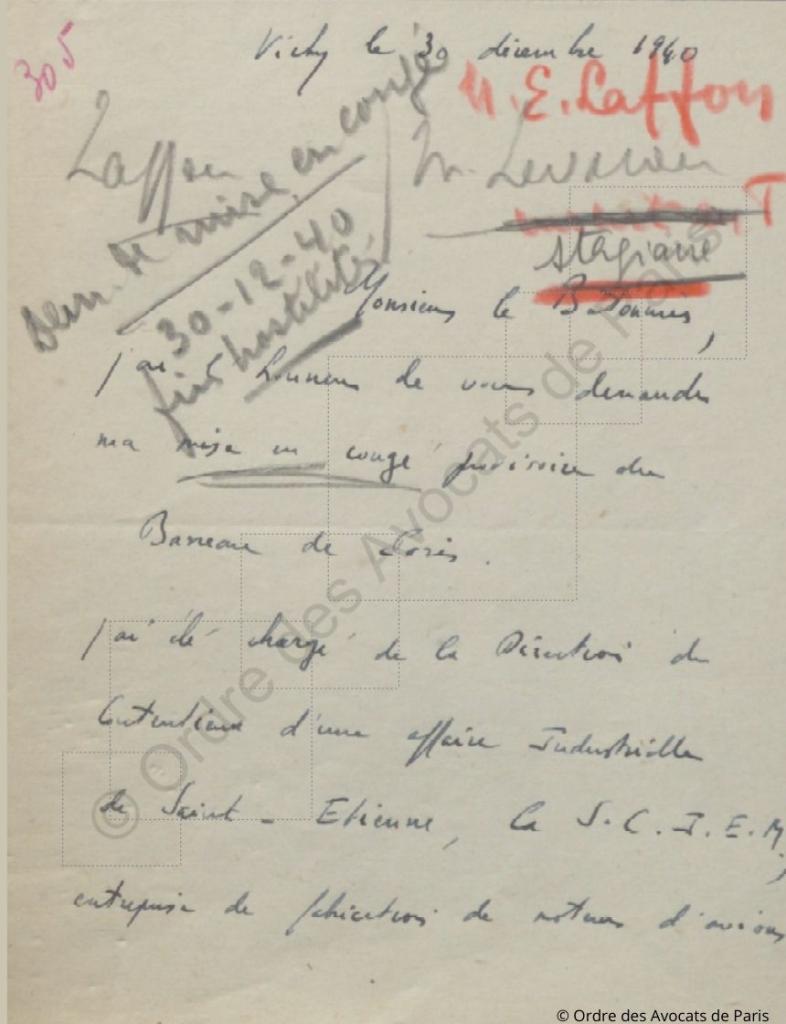 305
Vichy le 30 décembre 1940
M. E. Laffon
Laffon
Dem. de mise en congé
30-12-40
fin hostilités
M.
T
stagiaire
Monsieur le Batonnier,
j'ai l'honneur de vous demander
ma mise en congé provisoire du
Barreau de Paris.
j'ai été chargé de la Direction du
Contentieux d'une affaire Industrielle
de Saint-Etienne, la S.C.I.E.M,
entreprise de fabrication de moteurs d'avions
© Ordre des Avocats de Paris
© Ordre des Avocats de Paris